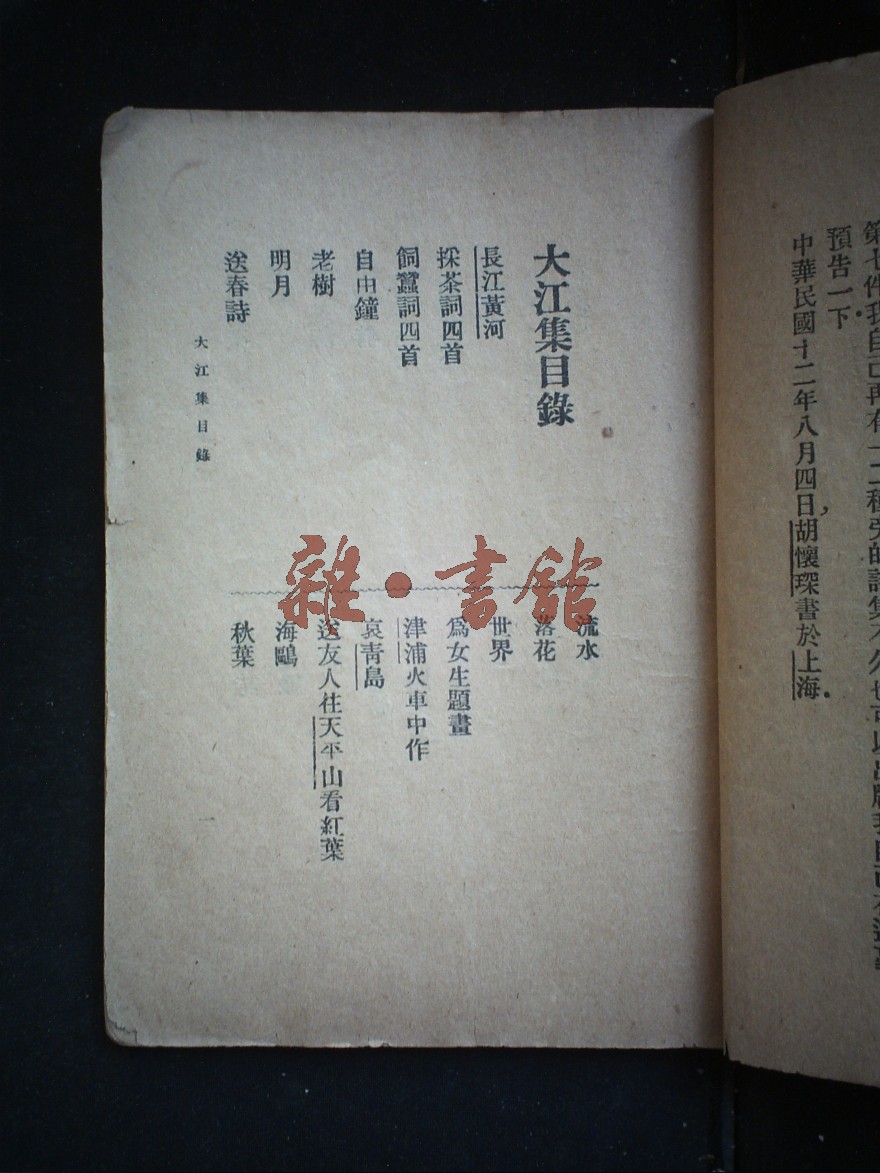 第七件我自己再有一二種旁的詩集不久也可以出版我自己
預告一下
中華民國十二年八月四日，胡懷琛書於上海。
大江集目錄
長江黃河
採茶詞四首
飼蠶詞四首
自由鐘
老樹
明月
送春詩
流水
落花
世界
爲女生題畫
津浦火車中作
哀青島
送友人往天平山看紅葉
海鷗
秋葉
大江集目錄
雜·書館